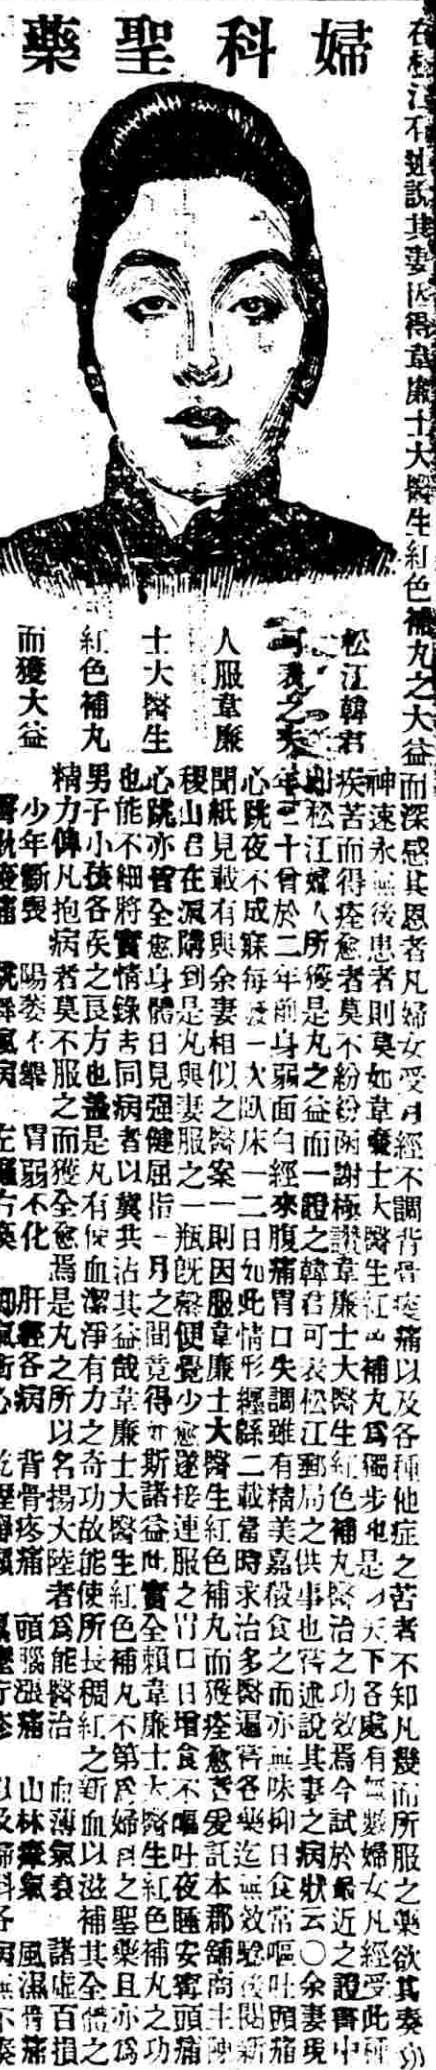 婦科聖藥
在松江不說其妻因得韋廉士大醫生紅色補丸之大益而深感其恩者凡婦女受月經不調背骨痠痛以及各種他症之苦者不知凡幾而所服之藥欲其奏功
松江韓君
可表之夫
人服韋廉
士大醫生
紅色補丸
而獲大益
神速永無後患者則莫如韋廉士大醫生紅色補丸為獨步也是乃天下各處有無數婦女凡經受此種
疾苦而得痊愈者莫不紛紛函謝極讚韋廉士大醫生紅色補丸醫治之功效焉今試於最近之證書中
則松江婦人所獲是丸之益而一證之韓君可表松江郵局之供事也嘗述說其妻之病狀云〇余妻現
年三十曾於二年前身弱面白經來腹痛胃口失調雖有精美嘉殽食之而亦無味抑日食常嘔吐頭痛
心跳夜不成寐每發一次臥床一二日如此情形纏緜二載當時求治多醫遍嘗各藥迄無效驗後閱新
聞紙見載有與余妻相似之醫案一則因服韋廉士大醫生紅色補丸而獲痊愈者爰託本郡舖商主陳
稷山君在滬購到是丸與妻服之一瓶旣罄便覺少愈遂接連服之胃口日增食不嘔吐夜睡安寗頭痛
心跳亦皆全愈身體日見强健屈指一月之間竟得如斯諸益此實全賴韋廉士大醫生紅色補丸之功
也能不細將實情錄告同病者以冀共沾其益哉韋廉士大醫生紅色補丸不第為婦科之聖藥且亦為
男子小孩各疾之良方也蓋是丸有使血潔淨有力之奇功故能使所長稠紅之新血以滋補其全體之
精力俾凡抱病者莫不服之而獲全愈焉是丸之所以名揚大陸者為能醫治 血薄氣衰 諸虛百損
少年斷喪 陽萎不舉 胃弱不化 肝經各病 背骨疼痛 頭腦漲痛 山林瘴氣 風濕骨痛